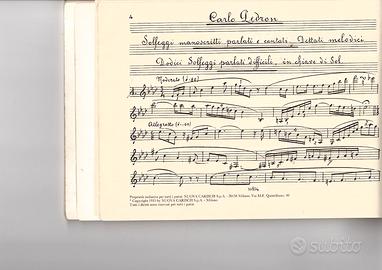 4
Carlo Pedron
Solfeggi manoscritti parlati e cantati. Dettati melodici
Dodici Solfeggi parlati difficili, in chiave di Sol.
Moderato
1.
Allegretto
Proprietà esclusiva per tutti i paesi: NUOVA CARISCH S.p.A. - 20138 Milano, Via M.F. Quintiliano, 40
© Copyright 1983 by NUOVA CARISCH S.p.A. - Milano
Tutti i diritti sono riservati per tutti i paesi.
subito